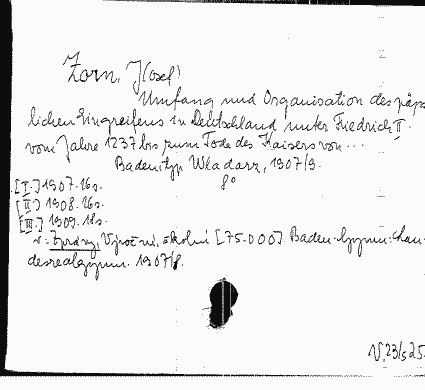 Zorn, J(osef)
Umfang und Organisation des päpst
lichen Eingreifens in Deutschland unter Friedrich II.
vom Jahre 1237 bis zum Tode des Kaisers von...
Baden, typ Wladarz, 1907/9.
8°
[I.] 1907. 26s.
[II.] 1908. 26s.
[III.] 1909. 18s.
v: Zprávy, Výroční, školní [75.000]. Baden. Gymn.
desrealgymn. 1907/8.
V,23/s25.